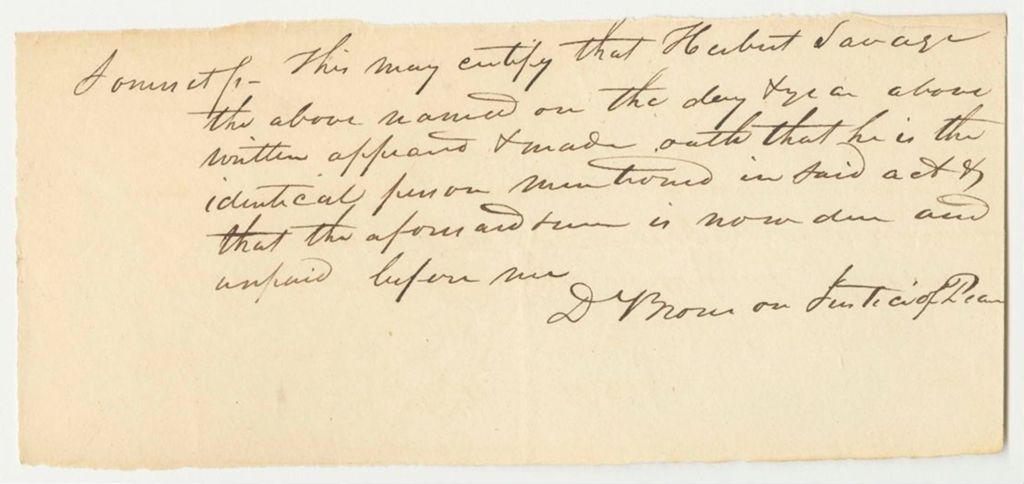 Somerset ss- This may certify that Herbert Savage
the above named on the day & year above
written appeard & made oath that he is the
identical person mentioned in said act &
that the aforesaid sum is now due and
unpaid before me
D Bronson Justice of Peace